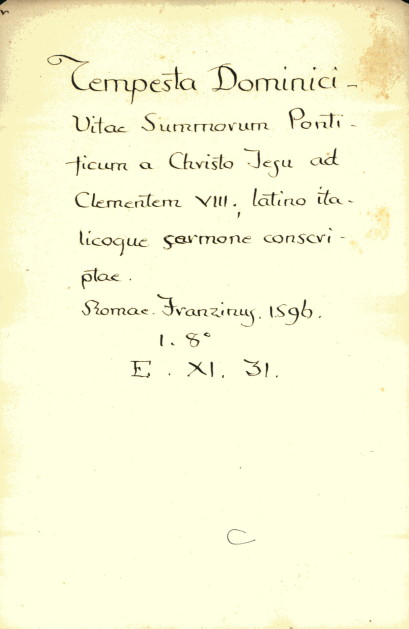 Tempesta Dominici -
Vitae Summorum Ponti-
ficum a Christo Jesu ad
Clementem VIII, latino ita-
licoque sermone conscri-
ptae.
Romae. Franzinus. 1596.
1. 8°
E. XI. 31.
C